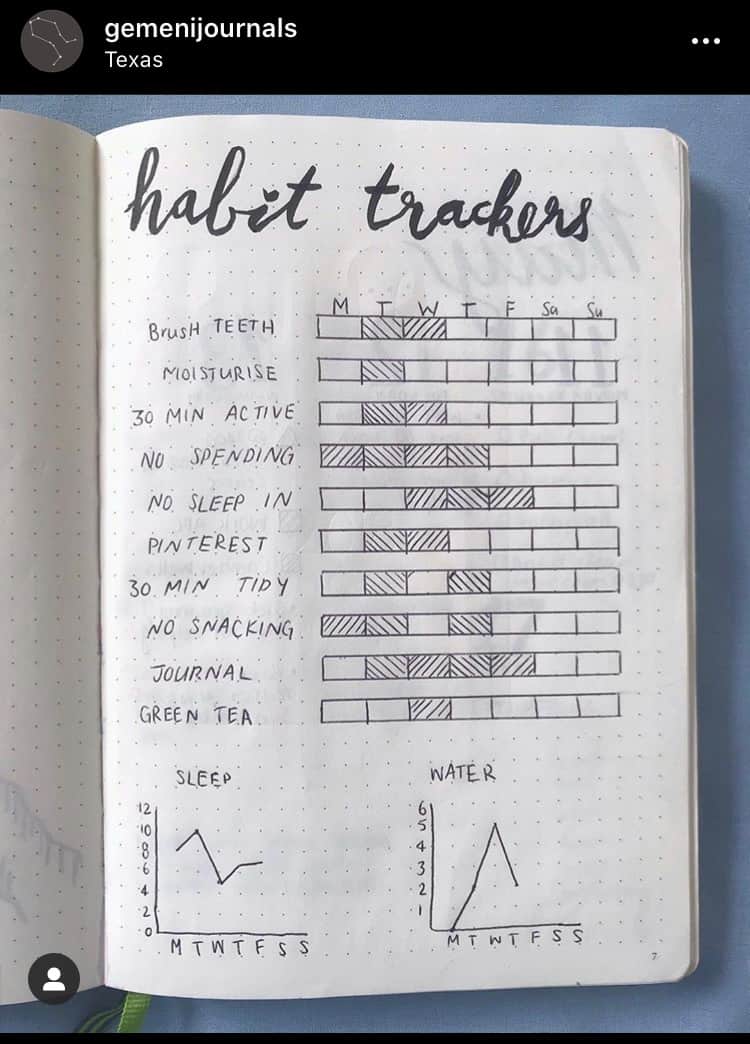 gemenijournals
Texas
habit trackers
M T W T F Sa Su
BrusH TEETH
MOISTURISE
30 MIN ACTIVE
NO SPENDING
NO SLEEP IN
PINTEREST
30 MIN TIDY
NO SNACKING
JOURNAL
GREEN TEA
SLEEP
12
10
8
6
4
2
0
M T W T F S S
WATER
6
5
4
3
2
1
M T W T F S S
7